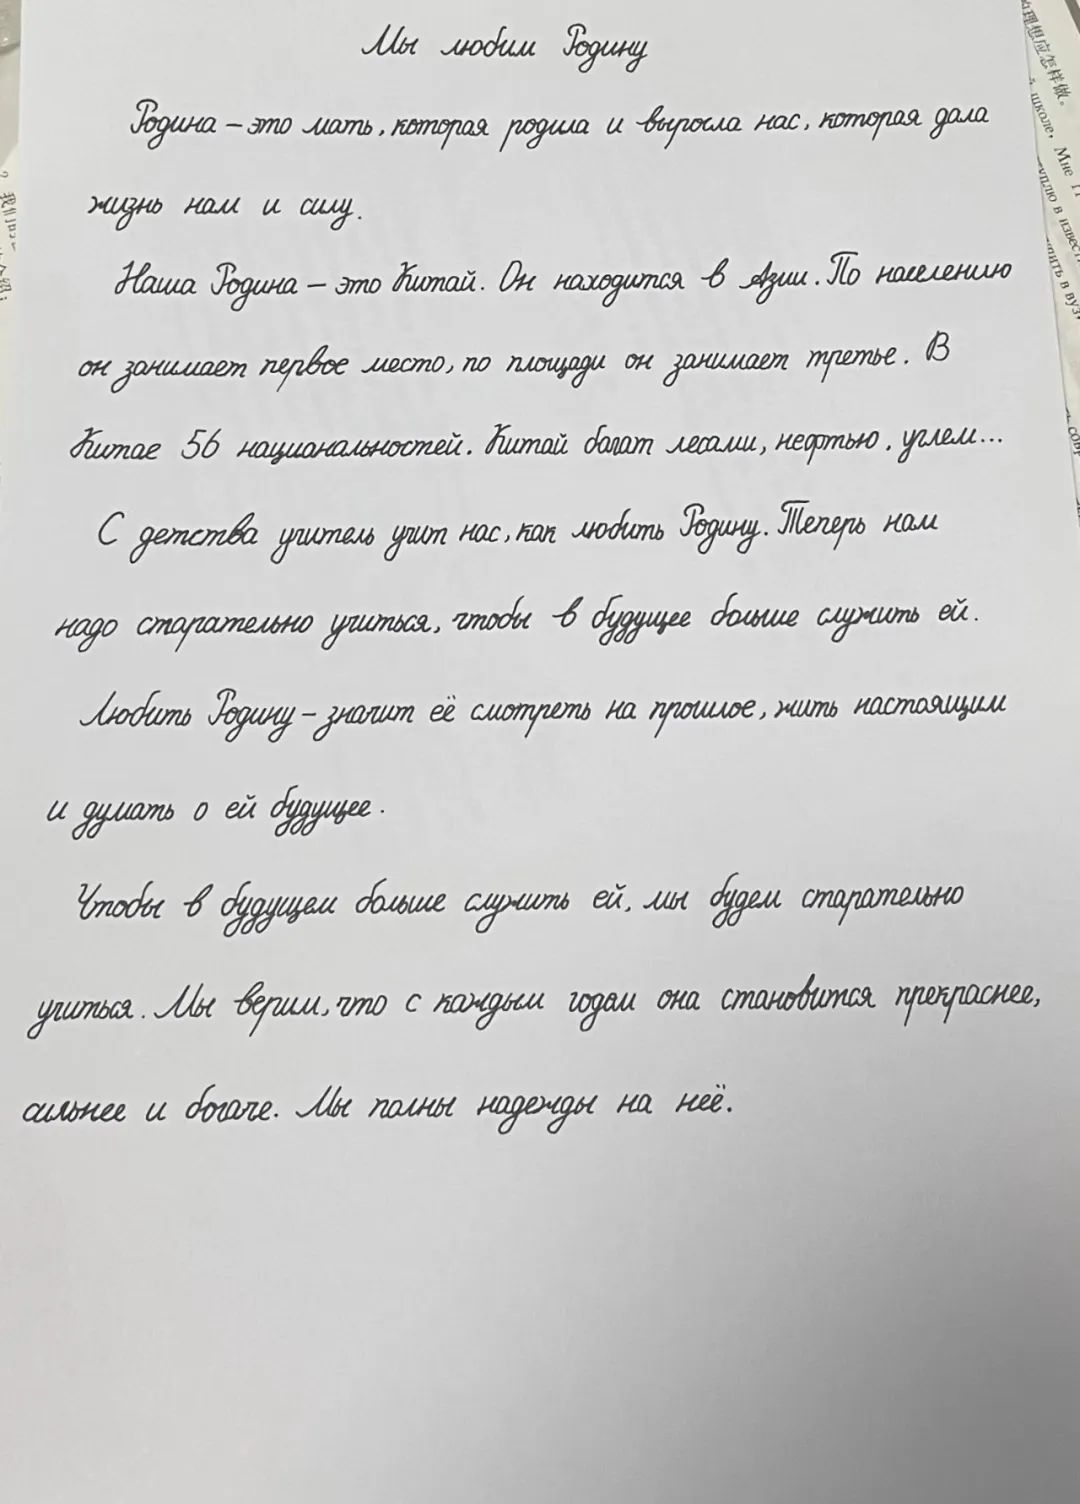 Мы любим Родину
Родина – это мать, которая родила и выросла нас, которая дала
жизнь нам и силу.
Наша Родина – это Китай. Он находится в Азии. По населению
он занимает первое место, по площади он занимает третье. В
Китае 56 национальностей. Китай богат лесами, нефтью, углем...
С детства учитель учит нас, как любить Родину. Теперь нам
надо старательно учиться, чтобы в будущее больше служить ей.
Любить Родину – значит её смотреть на прошлое, жить настоящим
и думать о ей будущее.
Чтобы в будущем больше служить ей, мы будем старательно
учиться. Мы верим, что с каждым годам она становится прекраснее,
сильнее и богаче. Мы полны надежды на неё.
理想应怎样做。
школе. Мне
в извест
пить в вуз,
我们